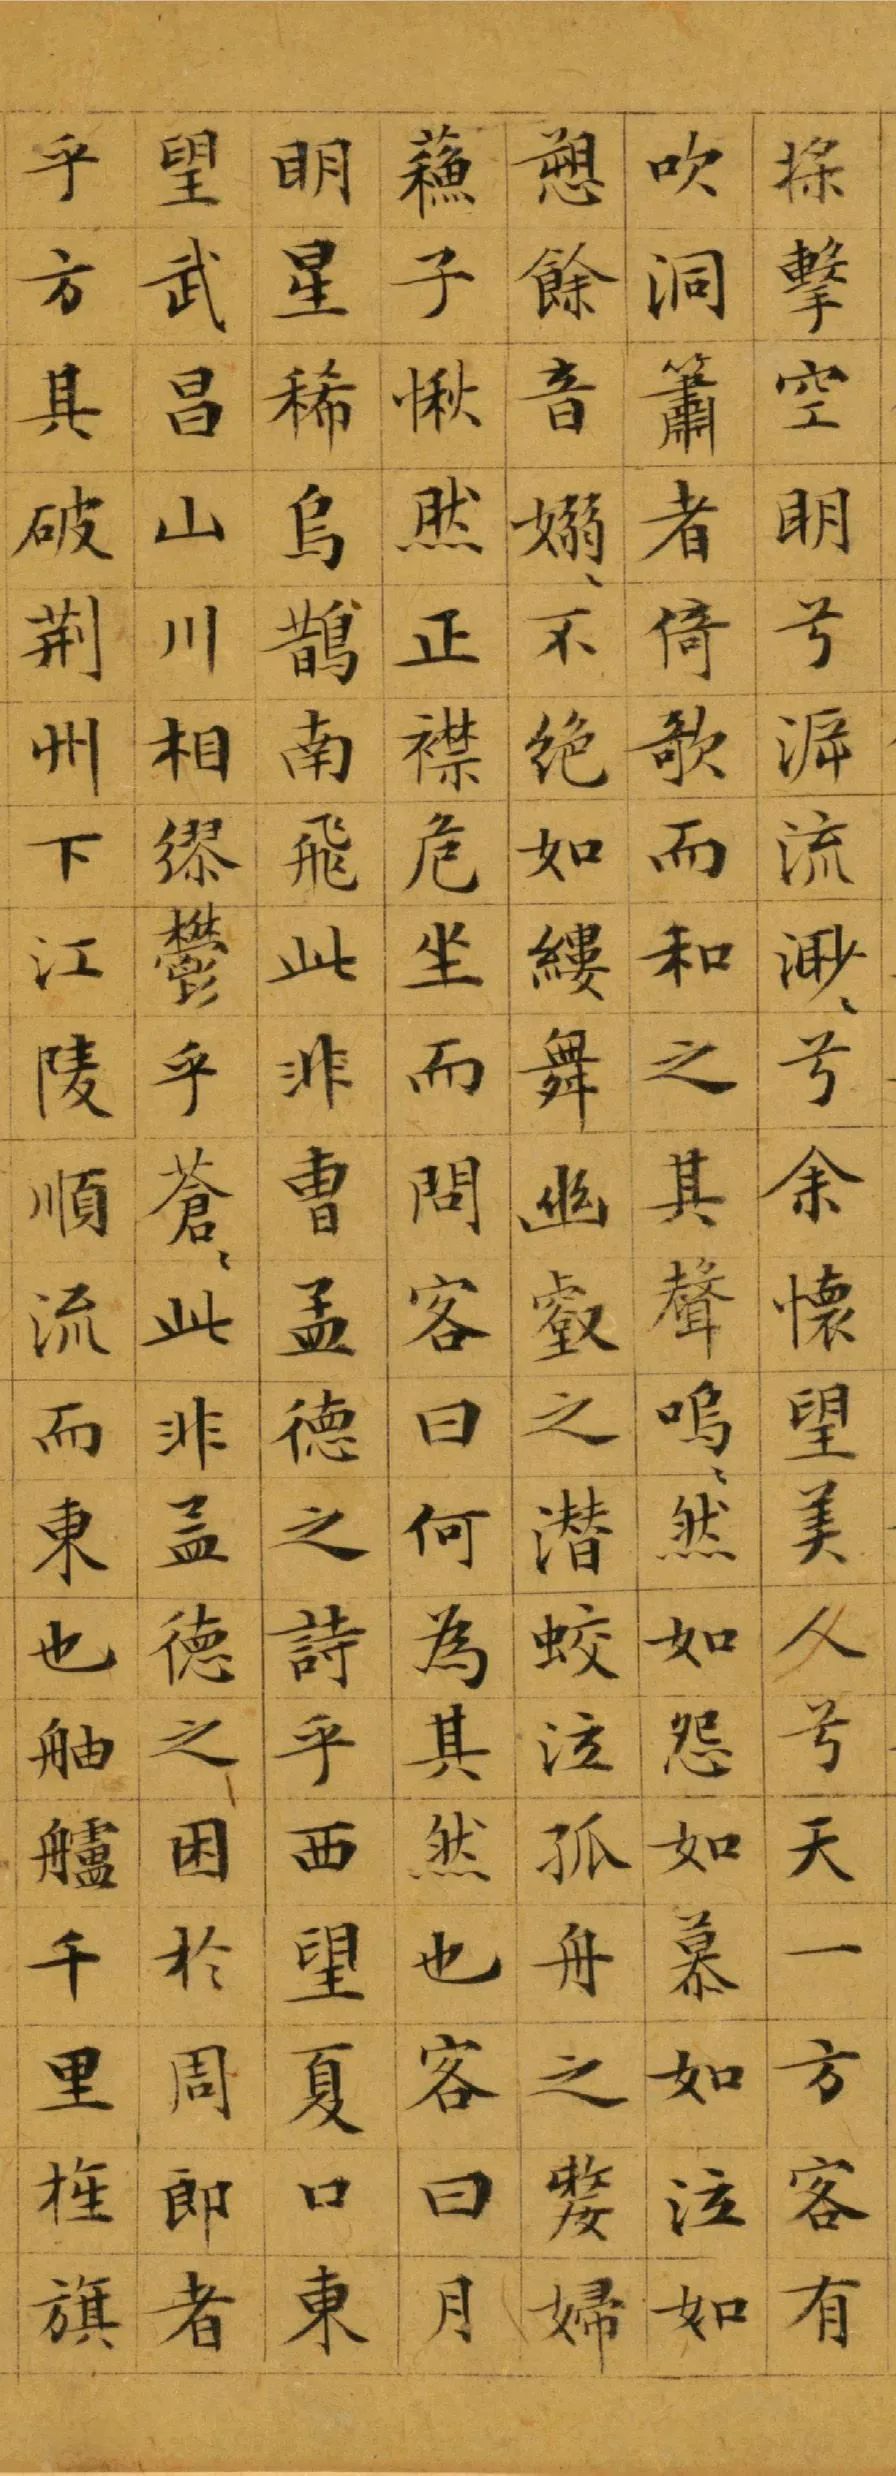 槳擊空明兮泝流渺〻兮余懷望美人兮天一方客有
吹洞簫者倚歌而和之其聲嗚〻然如怨如慕如泣如
愬餘音嫋〻不絶如縷舞幽壑之潛蛟泣孤舟之嫠婦
蘇子愀然正襟危坐而問客曰何為其然也客曰月
明星稀烏鵲南飛此非曹孟德之詩乎西望夏口東
望武昌山川相繆鬱乎蒼〻此非孟德之困於周郎者
乎方其破荊州下江陵順流而東也舳艫千里旌旗